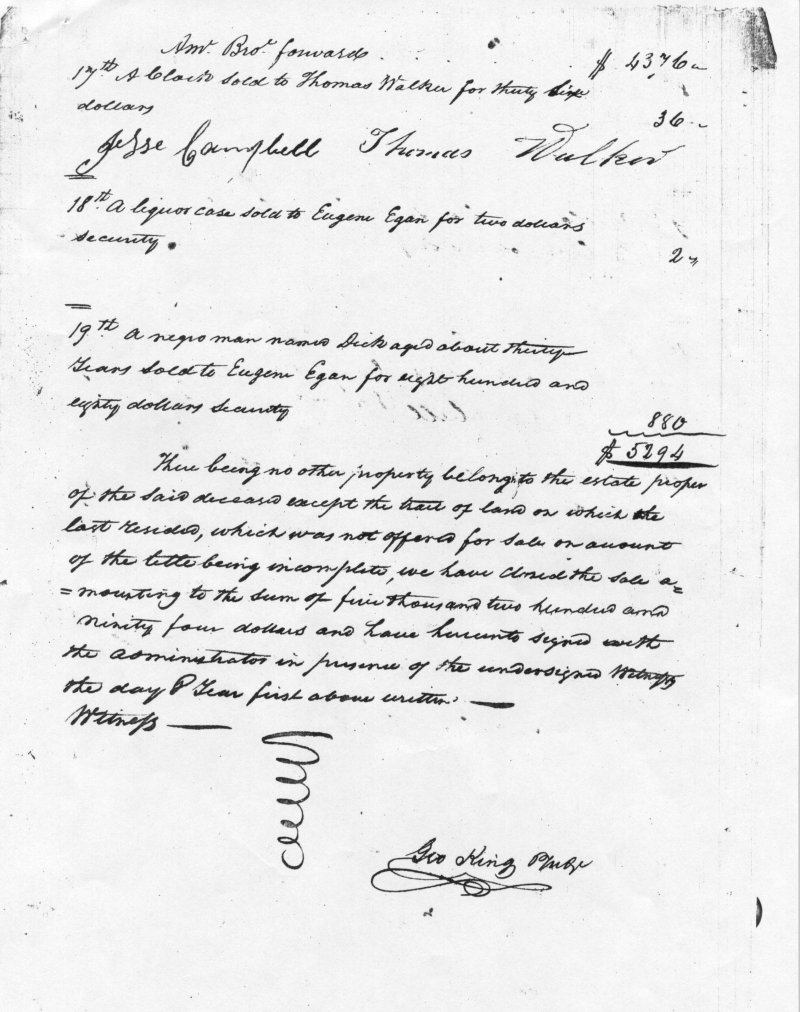 Amt. Brot. forward $ 4376
17th A Clock sold to Thomas Walker for thirty six
dollars 36
Jesse Campbell Thomas Walker
18th A liquor case sold to Eugene Egan for two dollars
security 2
19th A negro man named Dick aged about thirty
Years sold to Eugene Egan for eight hundred and
eighty dollars security
880
$ 5294
There being no other property belong to the estate proper
of the said deceased except the tract of land on which he
last resided, which was not offered for sale on account
of the title being incomplete, we have closed the sale a=
=mounting to the sum of five thousand two hundred and
ninity four dollars and have hereunto signed with
the administrator in presence of the undersigned Witness
the day & Year first above written. —
Witness —
Geo King